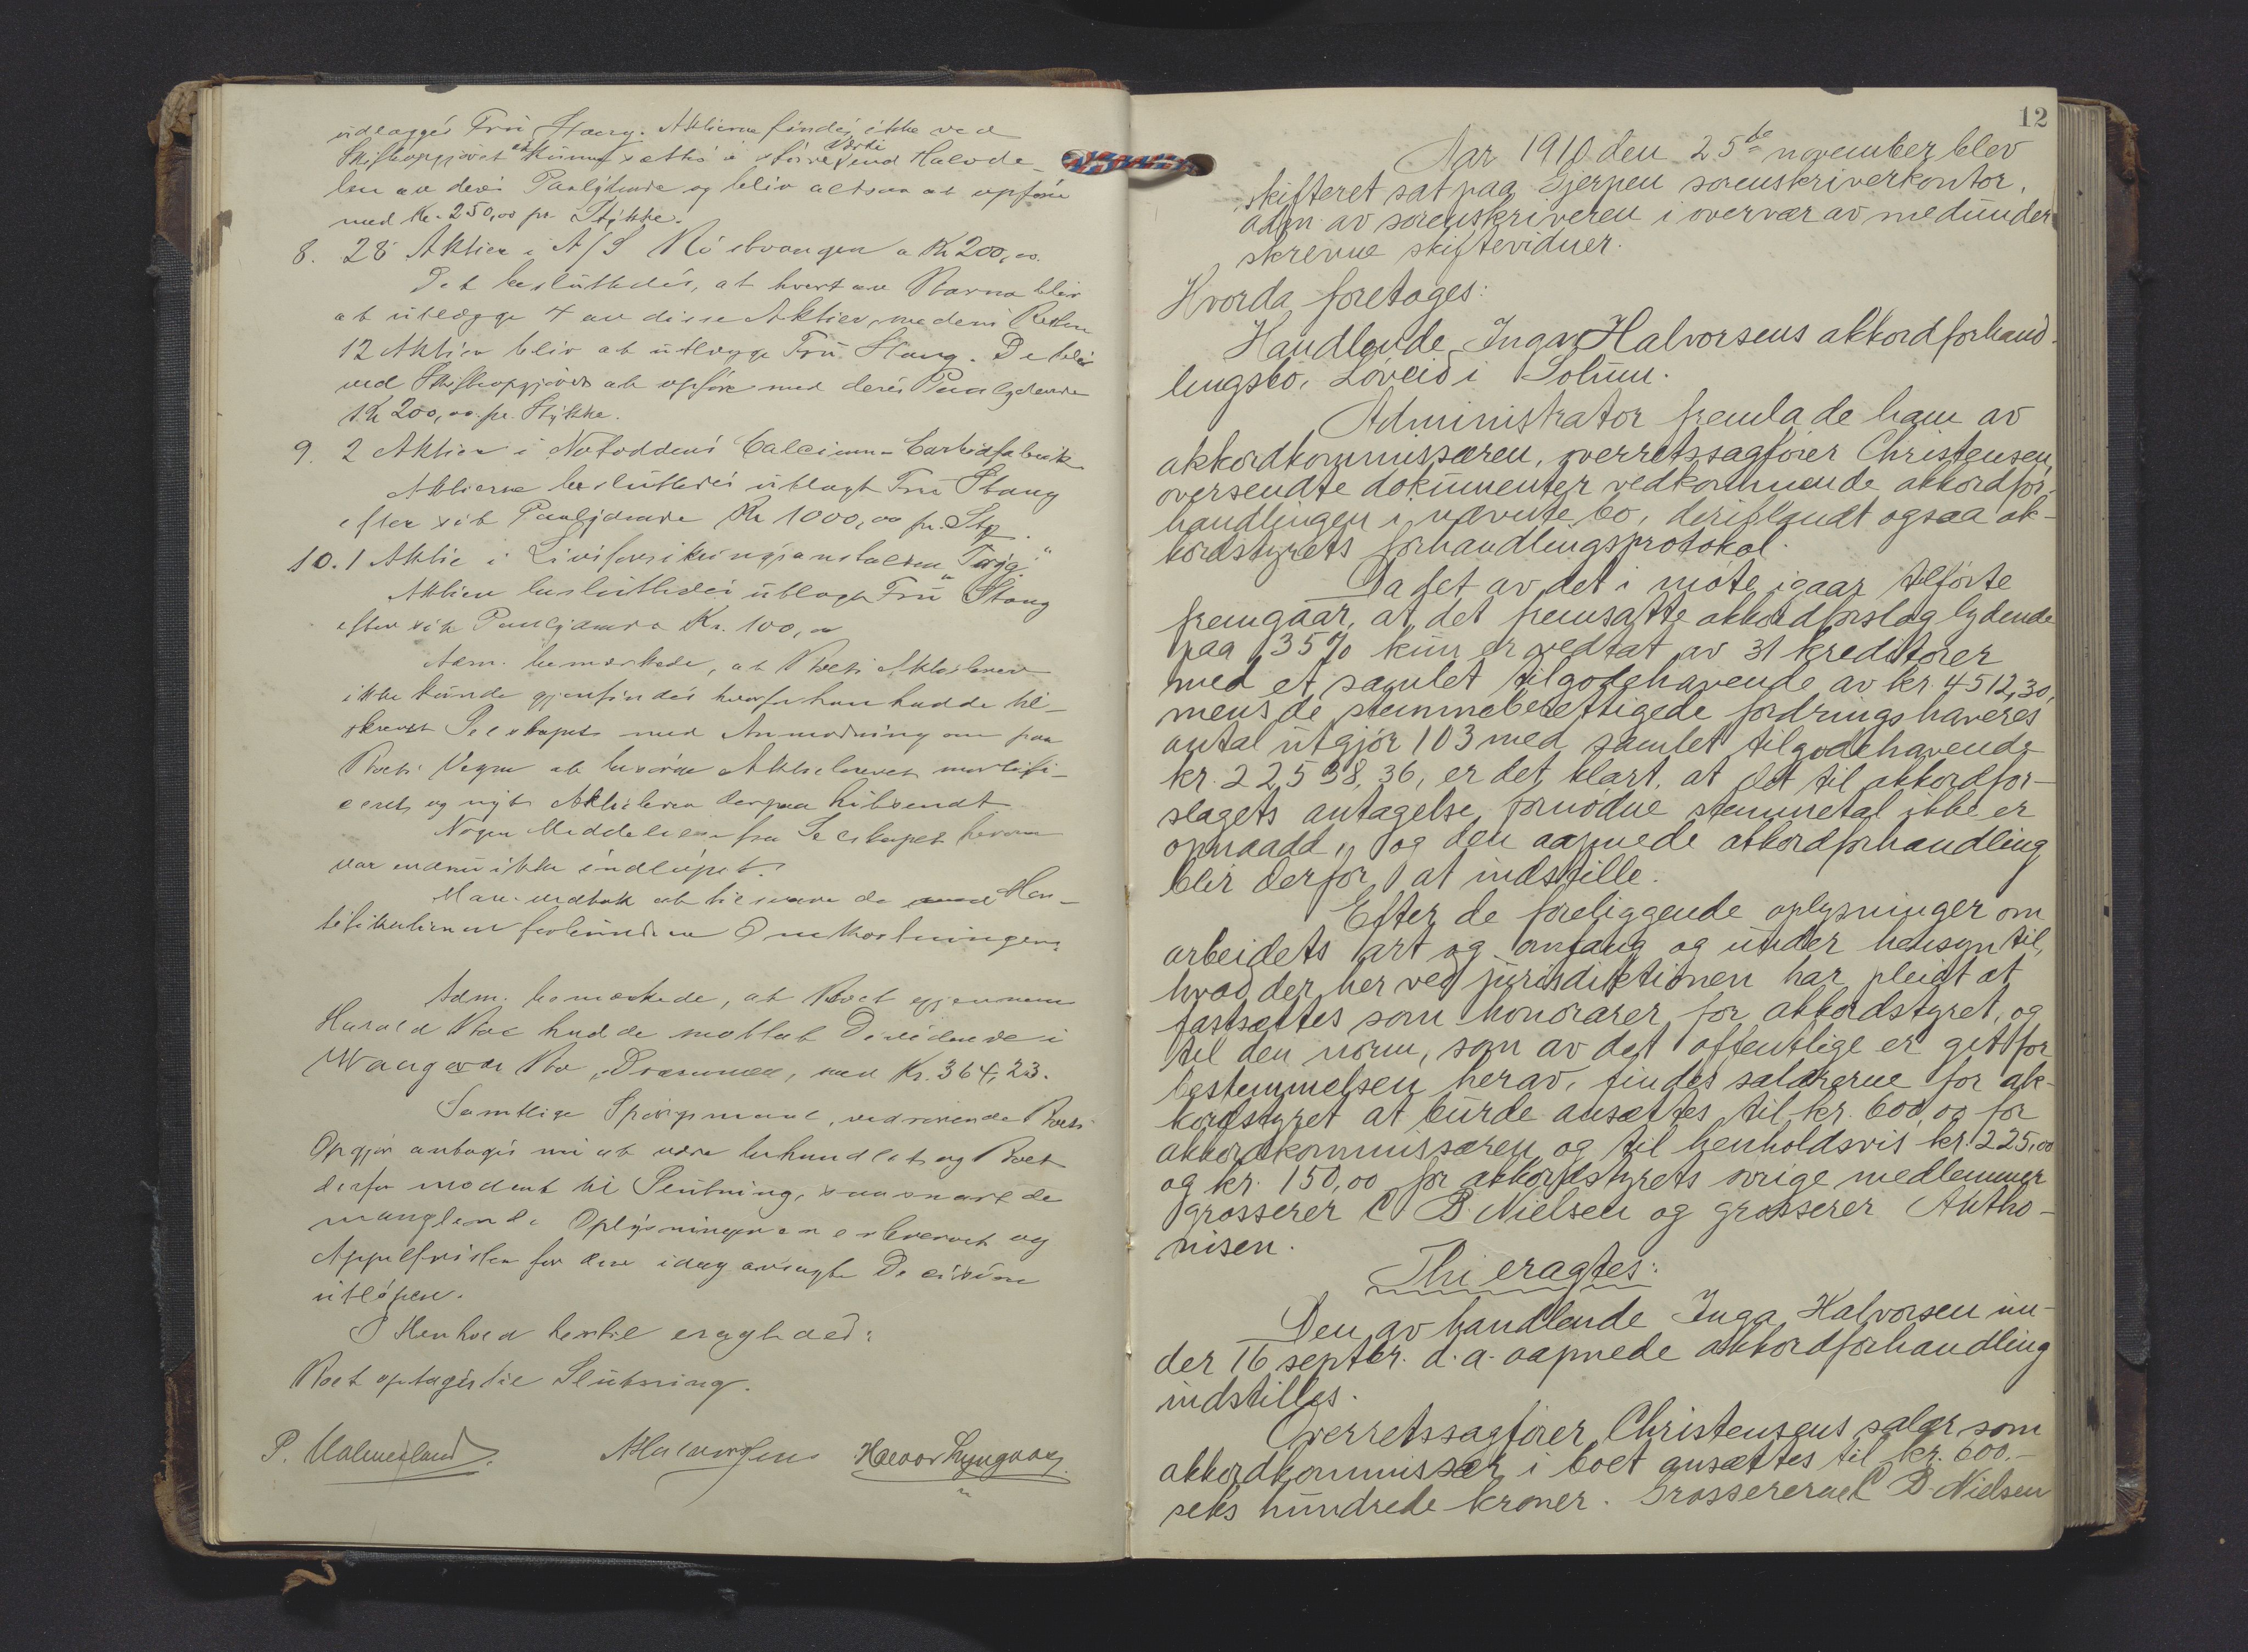 udlagges Fru Stang. Aktierne findes ikke ved
Skifteopgjøret at kunne sættes i større Værdi end Halvde-
len av deres Paalydende og bliv altsaa at opføre
med Kr. 250,00 pr Stykke.
8. 28 Aktier i A/S a Kr 200,00.
Det besluttedes, at hvert av Barna blir
at utlægge 4 av disse Aktier, medens Resten
12 Aktier bliv at utlægge Fru Stang. De blir
ved Skifteopgjøret at opføre med deres Paalydende
Kr 200,00 pr. Stykke.
9. 2 Aktier i Notoddens Calcium-Carbidfabrik
Aktierne besluttedes utlagt Fru Stang
efter sit Paalydende Kr 1000,00 pr. Stk.
10. 1 Aktie i Livsforsikringsanstalten "Tryg"
Aktien besluttedes utlagt Fru Stang
efter sit Paalydende Kr. 100,00
Adm. bemærkede, at Boets Aktiebrev
ikke kunde gjenfindes hvorfor han hadde til-
skrevet Selskapet med Anmodning om paa
Boets Vegne at besørge Aktiebrevet mortifi-
ceret og nyt Aktiebrev derpaa tilsendt
Nogen Meddelelse fra Selskapet herom
var endnu ikke indløpet.
Man vedtok at tilsvare de med Mor-
tifikationen forbundne Omkostninger.
Adm. bemærkede, at Boet gjennem
Harald Boe hadde mottat Dividende i
Bo, Drammen, med Kr. 364,23.
Samtlige Spørgsmaal, vedrørende Boets
Opgjør antages nu at være behandlet og Boet
derfor modent til Slutning, saasnart de
manglende Oplysninger er erhvervet og
Appelfristen for den idag avsagte Decision
utløpen.
I Henhold hertil eragtedes:
Boet optages til Slutning.
P. Halvorsen Halvor Lyngaas
12
Aar 1910 den 25de november blev
skifteret sat paa Gjerpen sorenskriverkontor,
adm. av sorenskriveren i overvær av medunder
skrevne skiftevidner.
Hvorda foretages:
Handlende Inga Halvorsens akkordforhand-
lingsbo, Løveid i Solum.
Administrator fremla de ham av
akkordkommissæren, overretssagfører Christensen,
oversendte dokumenter vedkommende akkordfor-
handlingen i nævnte bo, deriblandt ogsaa ak-
kordstyrets forhandlingsprotokol.
Da det av det i møte igaar tilførte
fremgaar, at det fremsatte akkordforslag lydende
paa 35% kun er vedtat av 31 kreditorer
med et samlet tilgodehavende av kr. 4512,30,
mens de stemmeberettigede fordringshaveres
antal utgjør 103 med samlet tilgodehavende
kr. 22538,36, er det klart, at det til akkordfor-
slagets antagelse fornødne stemmetal ikke er
opnaadd, og den aapnede akkordforhandling
blir derfor at indstille.
Efter de foreliggende oplysninger om
arbeidets art og omfang og under hensyn til,
hvad der her ved jurisdiktionen har pleidt at
fastsættes som honorarer for akkordstyret, og
til den norm, som av det offentlige er git for
bestemmelsen herav, findes salærerne for ak-
kordstyret at burde ansættes til kr. 600,00 for
akkordkommissæren og til henholdsvis kr. 225,00
og kr. 150,00 for akkordstyrets øvrige medlemmer
grosserer C B. Nielsen og grosserer Antho-
nisen.
Thi eragtes:
Den av handlende Inga Halvorsen un-
der 16 septbr. d. a. aapnede akkordforhandling
indstilles.
Overretssagfører Christensens salær som
akkordkommissær i boet ansættes til kr. 600.-
seks hundrede kroner. Grossererne C B. Nielsen